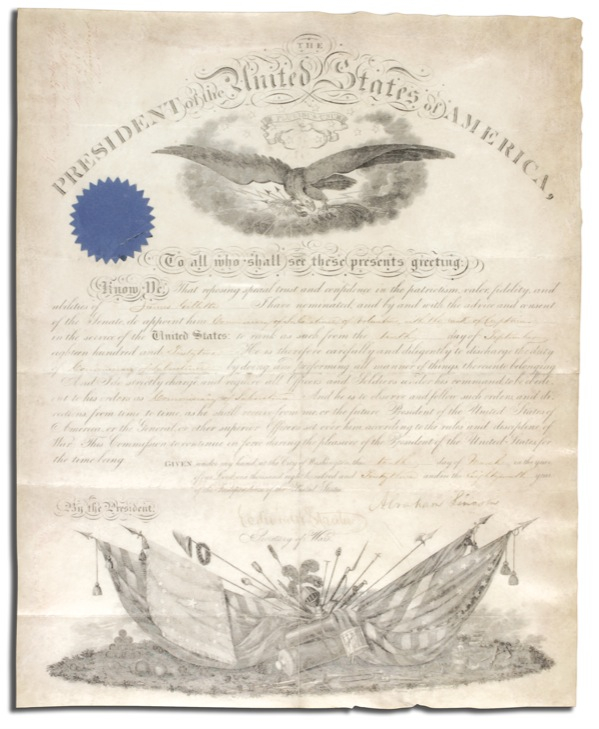 THE
PRESIDENT of the United States of AMERICA,
To all who shall see these presents greeting:
Know Ye, That reposing special trust and confidence in the patriotism, valor, fidelity, and
abilities of I have nominated, and by and with the advice and consent
of the Senate, do appoint him Commissary of Subsistence of Volunteers with the rank of Captain
in the service of the United States: to rank as such from the tenth day of September
eighteen hundred and He is therefore carefully and diligently to discharge the duty
of Commissary of Subsistence by doing and performing all manner of things thereunto belonging.
And I do strictly charge and require all Officers and Soldiers under his command to be obedi-
ent to his orders as Commissary of Subsistence And he is to observe and follow such orders, and di-
rections, from time to time, as he shall receive from me, or the future President of the United States of
America, or the General or other superior Officers set over him, according to the rules and discipline of
War. This Commission to continue in force during the pleasure of the President of the United States, for
the time being.
GIVEN under my hand, at the City of Washington, this day of March in the year
of our Lord one thousand eight hundred and and in the year
of the Independence of the United States.
By the President:
Abraham Lincoln
Secretary of War.